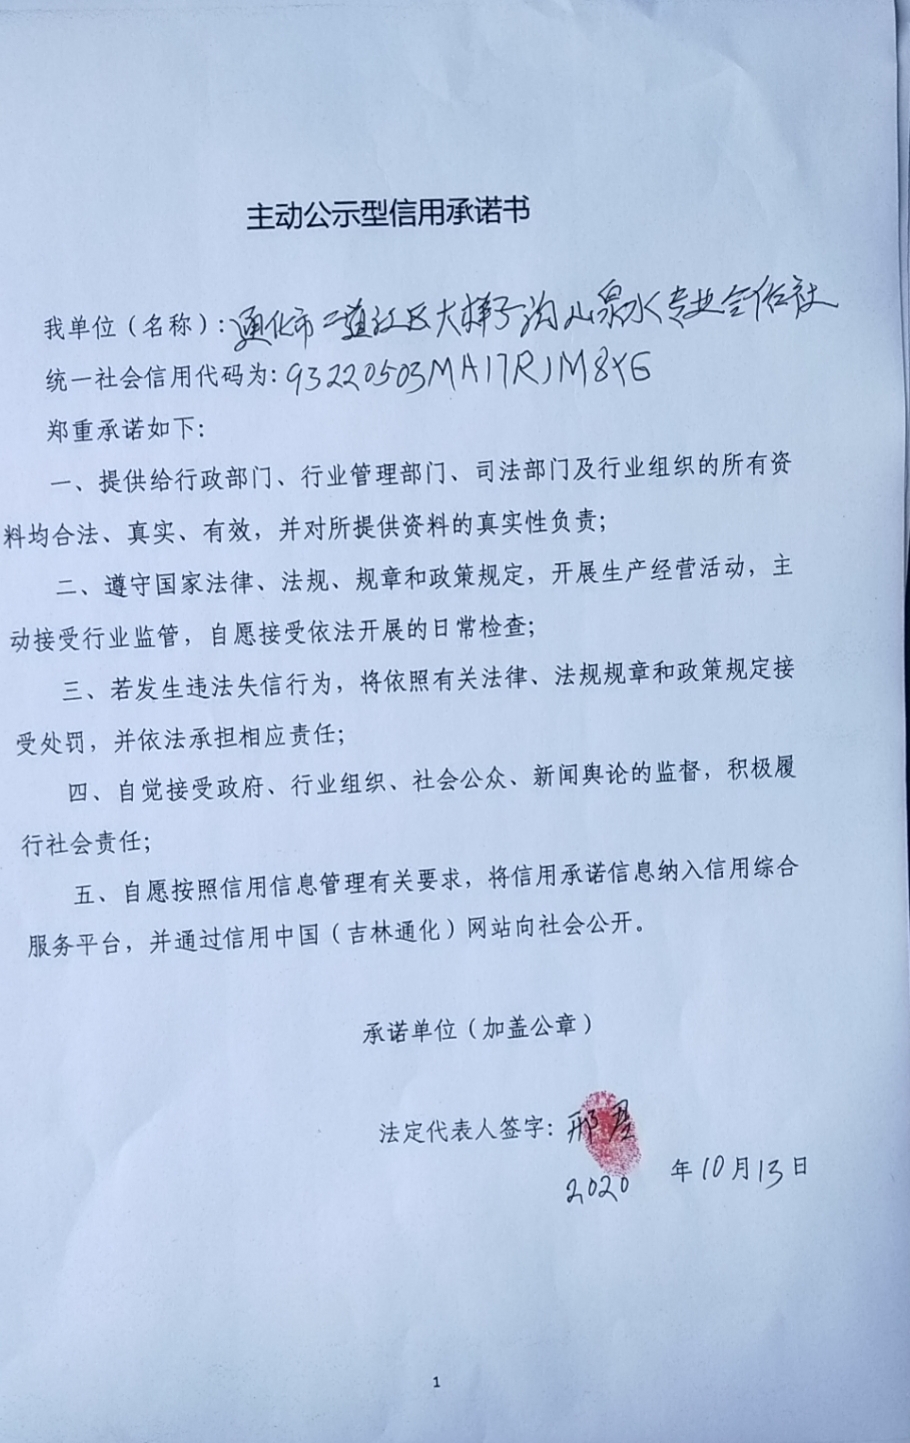 主动公示型信用承诺书
我单位（名称）：通化市二道江区大样子沟山泉水专业合作社
统一社会信用代码为：93220503MA17R1M8XG
郑重承诺如下：
一、提供给行政部门、行业管理部门、司法部门及行业组织的所有资
料均合法、真实、有效，并对所提供资料的真实性负责；
二、遵守国家法律、法规、规章和政策规定，开展生产经营活动，主
动接受行业监管，自愿接受依法开展的日常检查；
三、若发生违法失信行为，将依照有关法律、法规规章和政策规定接
受处罚，并依法承担相应责任；
四、自觉接受政府、行业组织、社会公众、新闻舆论的监督，积极履
行社会责任；
五、自愿按照信用信息管理有关要求，将信用承诺信息纳入信用综合
服务平台，并通过信用中国（吉林通化）网站向社会公开。
承诺单位（加盖公章）
法定代表人签字：邢
2020 年10月13日
1